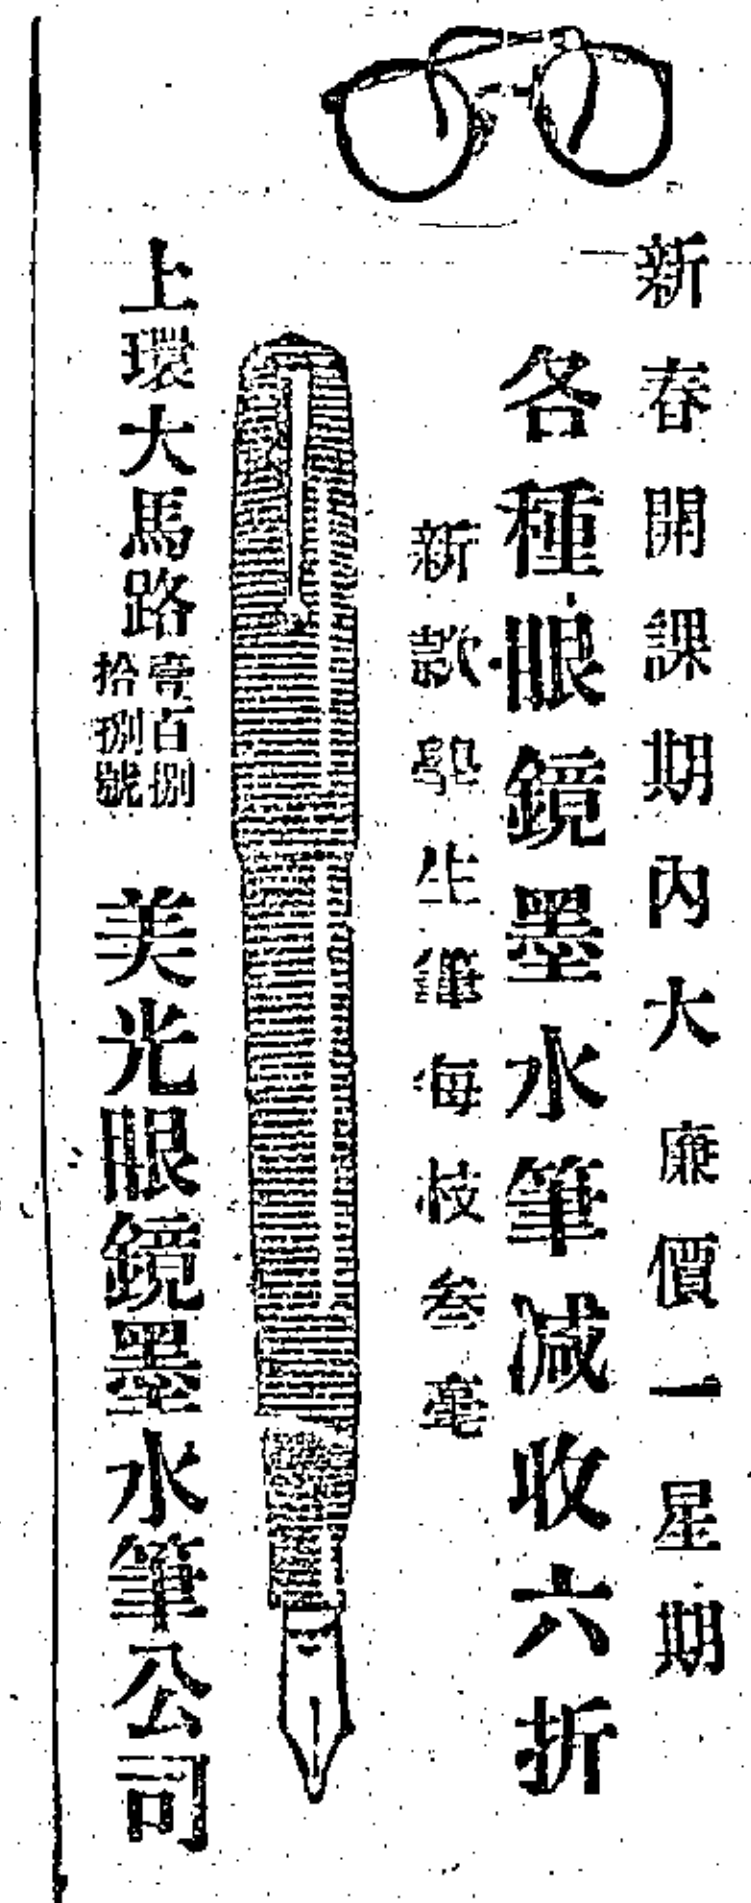 新春開課期內大廉價一星期
各種眼鏡墨水筆減收六折
新款學生筆每枝叁毫
上環大馬路壹百捌拾捌號
美光眼鏡墨水筆公司